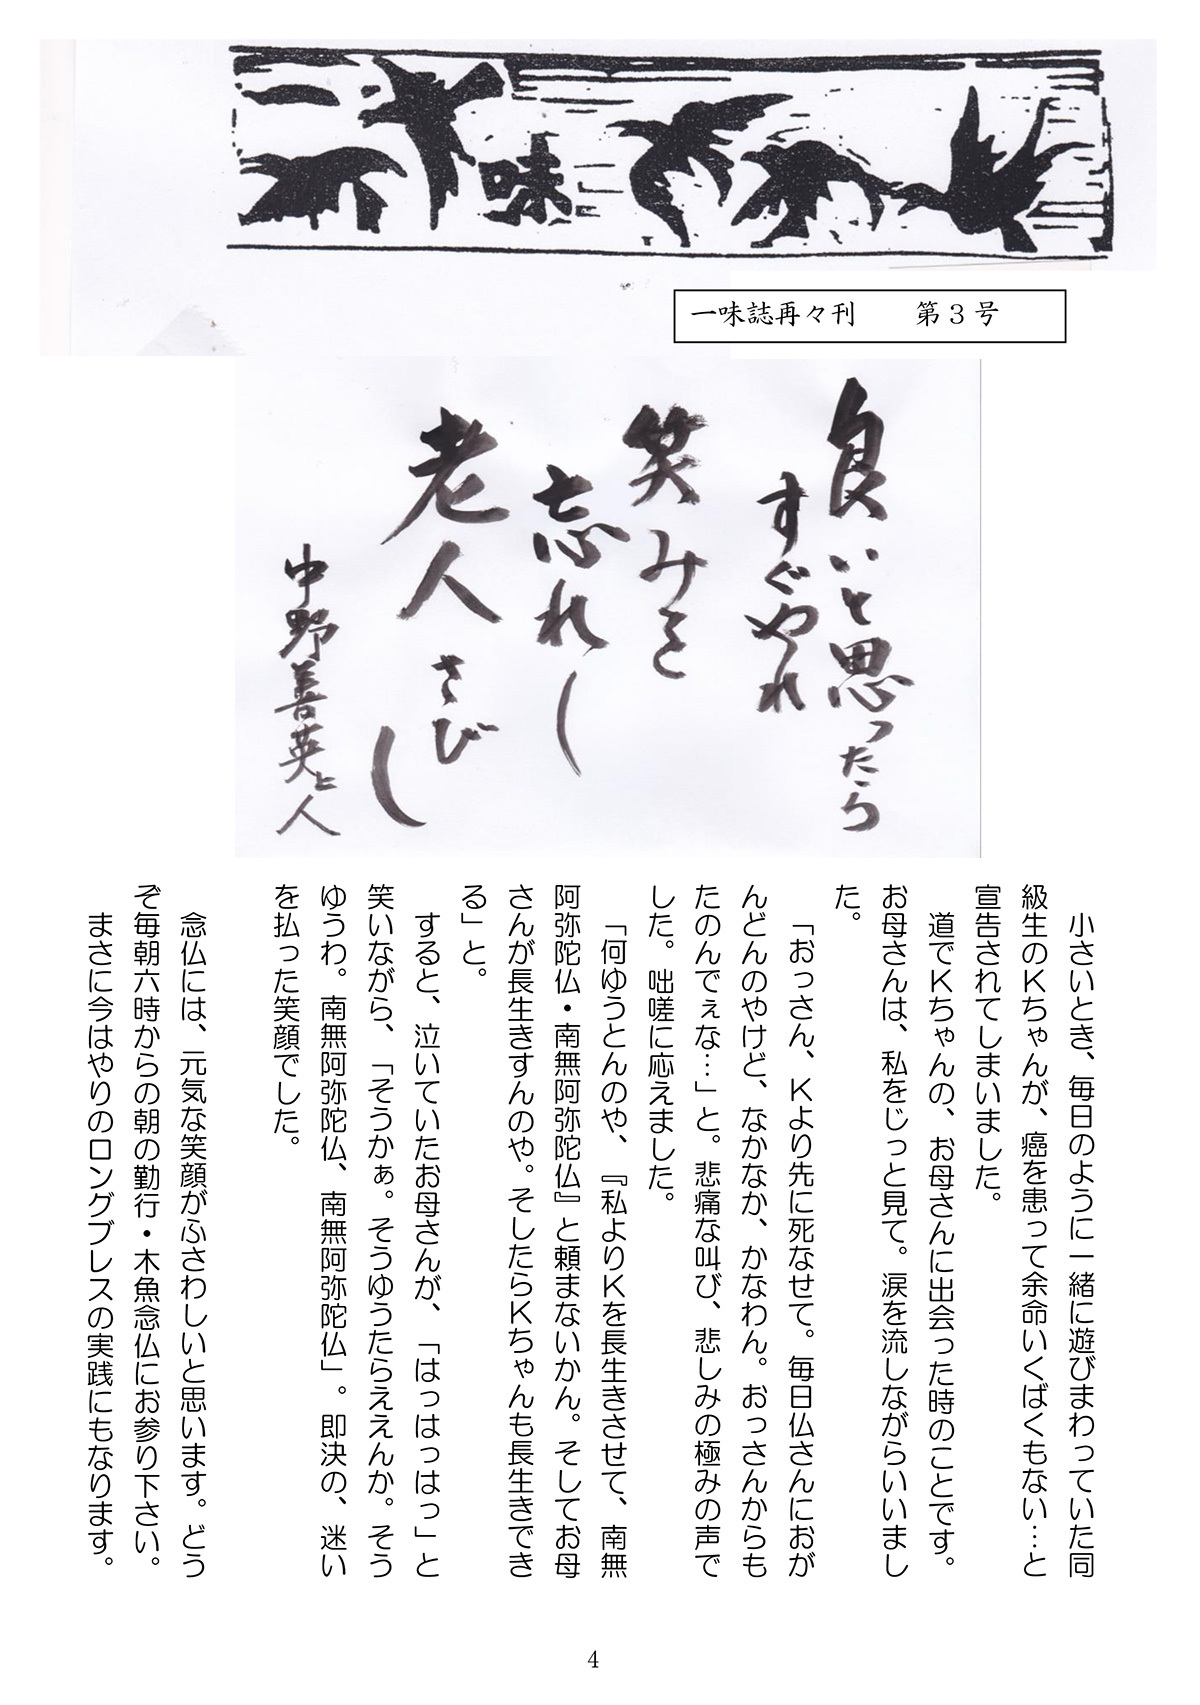 一味
一味誌再々刊　　第3号
良いと思ったら
すぐやれ
笑みを
忘れし
老人さび
し
中野善英上人
小さいとき、毎日のように一緒に遊びまわっていた同
級生のKちゃんが、癌を患って余命いくばくもない…と
宣告されてしまいました。
道でKちゃんの、お母さんに出会った時のことです。
お母さんは、私をじっと見て。涙を流しながらいいまし
た。
「おっさん、Kより先に死なせて。毎日仏さんにおが
んどんのやけど、なかなか、かなわん。おっさんからも
たのんでぇな…」と。悲痛な叫び、悲しみの極みの声で
した。咄嗟に応えました。
「何ゆうとんのや、『私よりKを長生きさせて、南無
阿弥陀仏・南無阿弥陀仏』と頼まないかん。そしてお母
さんが長生きすんのや。そしたらKちゃんも長生きでき
る」と。
すると、泣いていたお母さんが、「はっはっはっ」と
笑いながら、「そうかぁ。そうゆうたらええんか。そう
ゆうわ。南無阿弥陀仏、南無阿弥陀仏」。即決の、迷い
を払った笑顔でした。
念仏には、元気な笑顔がふさわしいと思います。どう
ぞ毎朝六時からの朝の勤行・木魚念仏にお参り下さい。
まさに今はやりのロングブレスの実践にもなります。
4